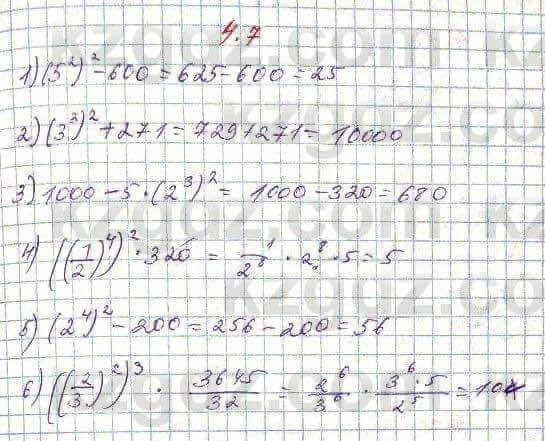 4.7
1) (5²)² - 600 = 625 - 600 = 25
2) (3³)² + 271 = 729 + 271 = 10000
3) 1000 - 5 · (2³)² = 1000 - 320 = 680
4) ((1/2)⁴)² · 320 = 1/2⁸ · 2⁸ · 5 = 5
5) (2⁴)² - 200 = 256 - 200 = 56
6) ((2/3)²)³ · 3645/32 = 2⁶/3⁶ · 3⁶·5/2⁵ = 10